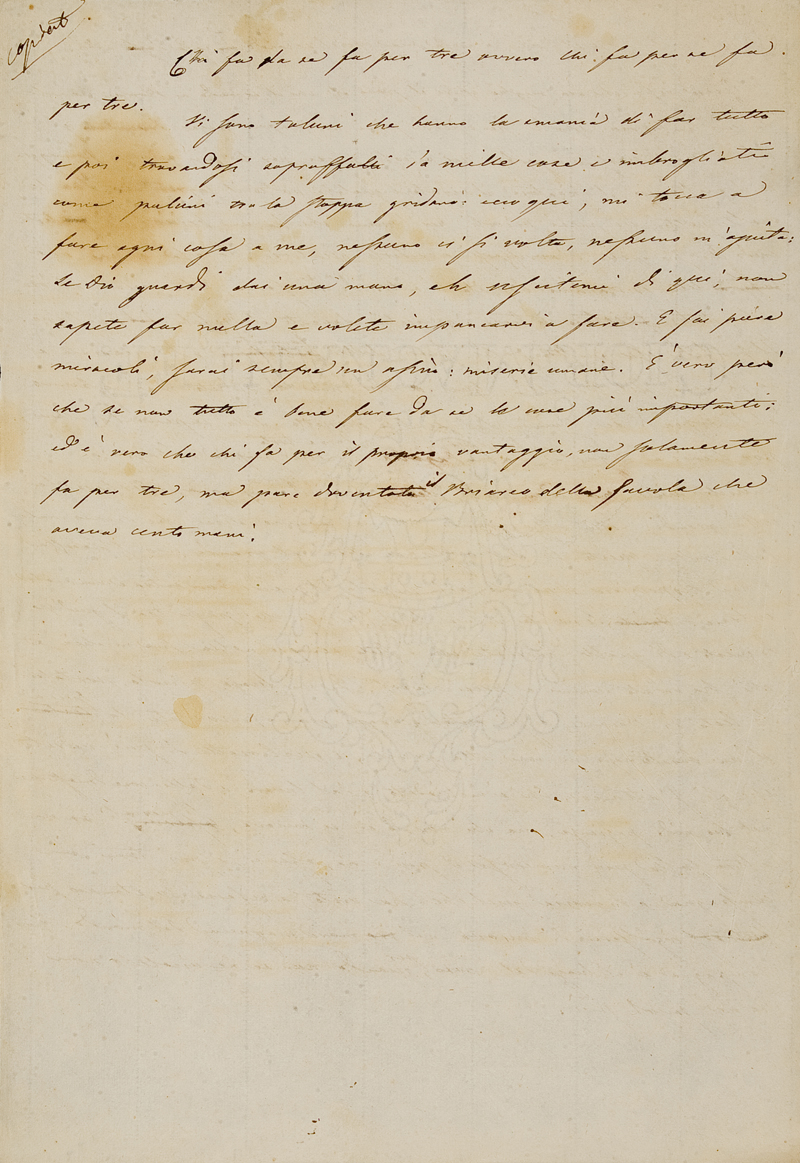 copiato
Chi fa da se fa per tre ovvero chi fa per se fa
per tre.
Vi sono taluni che hanno la smania di far tutto
e poi trovandosi sopraffatti da mille cose e imbrogliati
come pulcini tra la stoppa gridano: ecco qui, mi tocca a
fare ogni cosa a me, nessuno ci si volta, nessuno m'ajuta:
se Dio guardi dai una mano, eh uscitemi di qui, non
sapete far nulla e volete impancarvi a fare. E fai pure
miracoli, sarai sempre un asino: miserie umane. È vero però
che se non tutto è bene fare da se le cose più importanti;
ed è vero che chi fa per il proprio vantaggio, non solamente
fa per tre, ma pare diventato il Briareo della favola che
aveva cento mani.